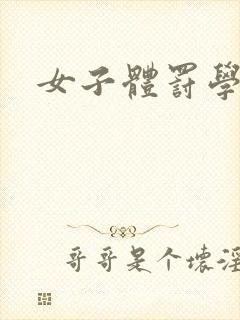 女子體罰學
哥哥是个壞淫